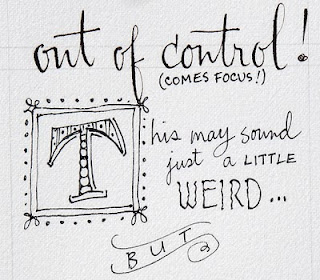 out of control!
(COMES FOCUS!)
This may sound
just a LITTLE
WEIRD...
BUT